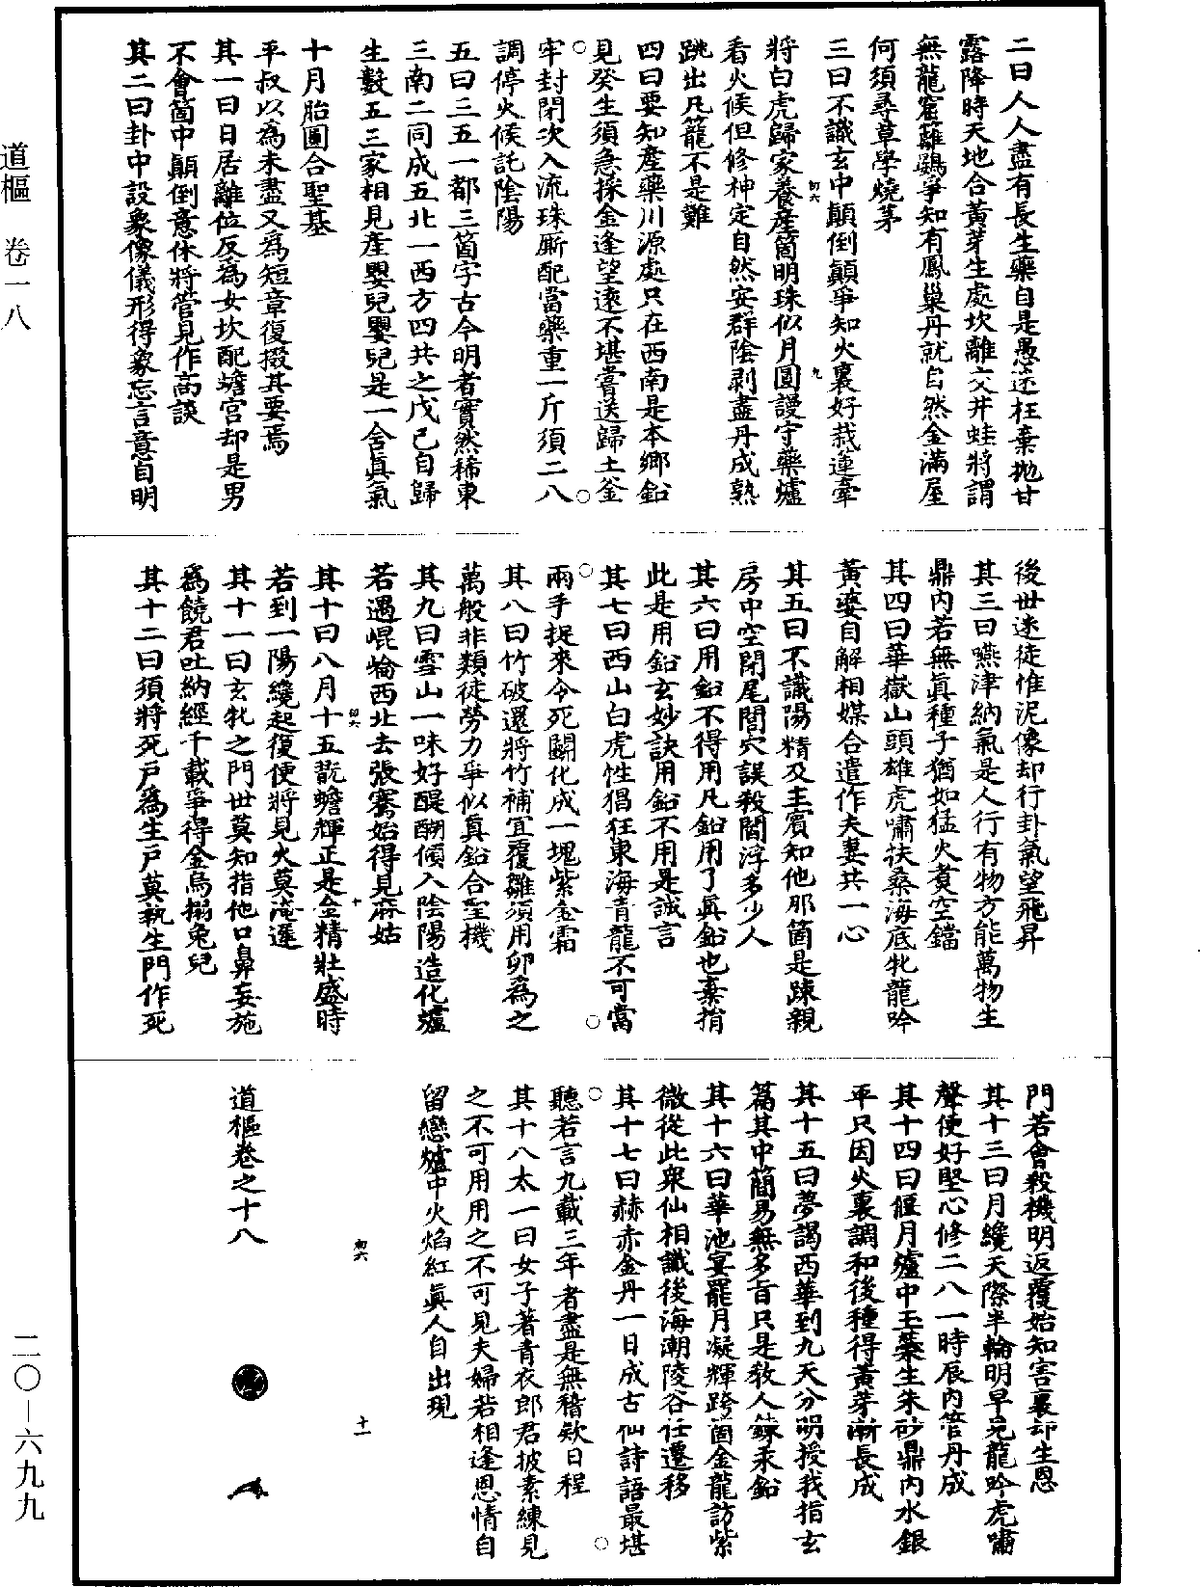 道樞　卷一八
二曰人人盡有長生藥自是愚迷枉棄拋甘
露降時天地合黃芽生處坎離交井蛙將謂
無龍窟蘺鷃爭知有鳳巢丹就自然金滿屋
何須尋草學燒茅
三曰不識玄中顛倒顛爭知火裏好栽蓮牽
將白虎歸家養產箇明珠似月圓謾守藥爐
看火候但修神定自然安群陰剥盡丹成熟
跳出凡籠不是難
四曰要知產藥川源處只在西南是本鄉鉛
見癸生須急採金逢望遠不堪嘗送歸土釜
牢封閉次入流珠厮配當藥重一斤須二八
調停火候託陰陽
五曰三五一都三箇字古今明者實然稀東
三南二同成五北一西方四共之戊己自歸
生數五三家相見產嬰兒嬰兒是一含眞氣
十月胎圓合聖基
平叔以為未盡又為短章復掇其要焉
其一曰日居離位反為女坎配蟾宮却是男
不會箇中顛倒意休將管見作高談
其二曰卦中設象像儀形得象忘言意自明
後世迷徒惟泥像却行卦氣望飛昇
其三曰嚥津納氣是人行有物方能萬物生
鼎內若無眞種子猶如猛火煑空鐺
其四曰華嶽山頭雄虎嘯扶桑海底牝龍吟
黃婆自解相媒合遣作夫妻共一心
其五曰不識陽精及主賓知他那箇是踈親
房中空閉尾閭穴誤殺閻浮多少人
其六曰用鉛不得用凡鉛用了眞鉛也棄捐
此是用鉛玄妙訣用鉛不用是誠言
其七曰西山白虎性猖狂東海青龍不可當
兩手捉來令死鬭化成一塊紫金霜
其八曰竹破還將竹補宜覆雞須用卵為之
萬般非類徒勞力爭似眞鉛合聖機
其九曰雪山一味好醍醐傾入陰陽造化爐
若遇崐崘西北去張騫始得見麻姑
其十曰八月十五翫蟾輝正是金精壯盛時
若到一陽纔起復便將見火莫淹遲
其十一曰玄牝之門世莫知指他口鼻妄施
為饒君吐納經千載爭得金烏搦兔兒
其十二曰須將死戶為生戶莫執生門作死
門若會殺機明返覆始知害裏却生恩
其十三曰月纔天際半輪明早見龍吟虎嘯
聲便好堅心修二八一時辰內管丹成
其十四曰偃月爐中玉蘂生朱砂鼎內水銀
平只因火裏調和後種得黃芽漸長成
其十五曰夢謁西華到九天分明授我指玄
篇其中簡易無多旨只是教人鍊汞鉛
其十六曰華池宴罷月凝輝跨箇金龍訪紫
微從此衆仙相識後海潮陵谷任遷移
其十七曰赫赤金丹一日成古仙詩語最堪
聽若言九載三年者盡是無稽欵日程
其十八太一曰女子著青衣郎君披素練見
之不可用用之不可見夫婦若相逢恩情自
留戀爐中火焰紅眞人自出現
道樞卷之十八
初六
九
初六
十
初六
十一
二〇－六九九